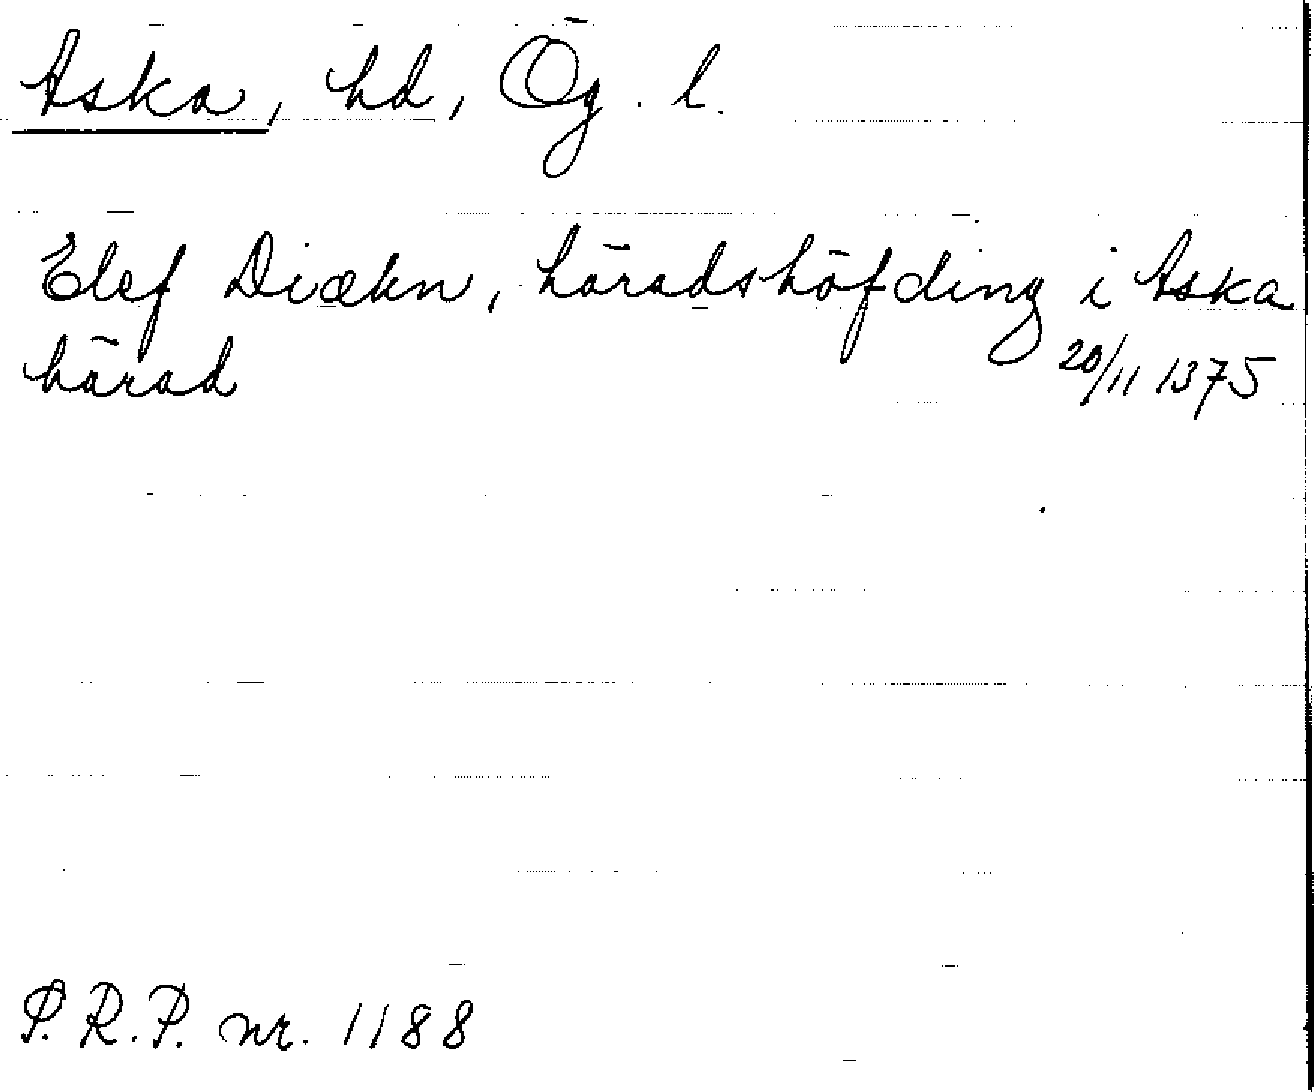 Aska, hd, Ög. l.
Elef Diækn, häradshöfding i Aska
härad 20/11 1375
P.R.P. nr. 1188